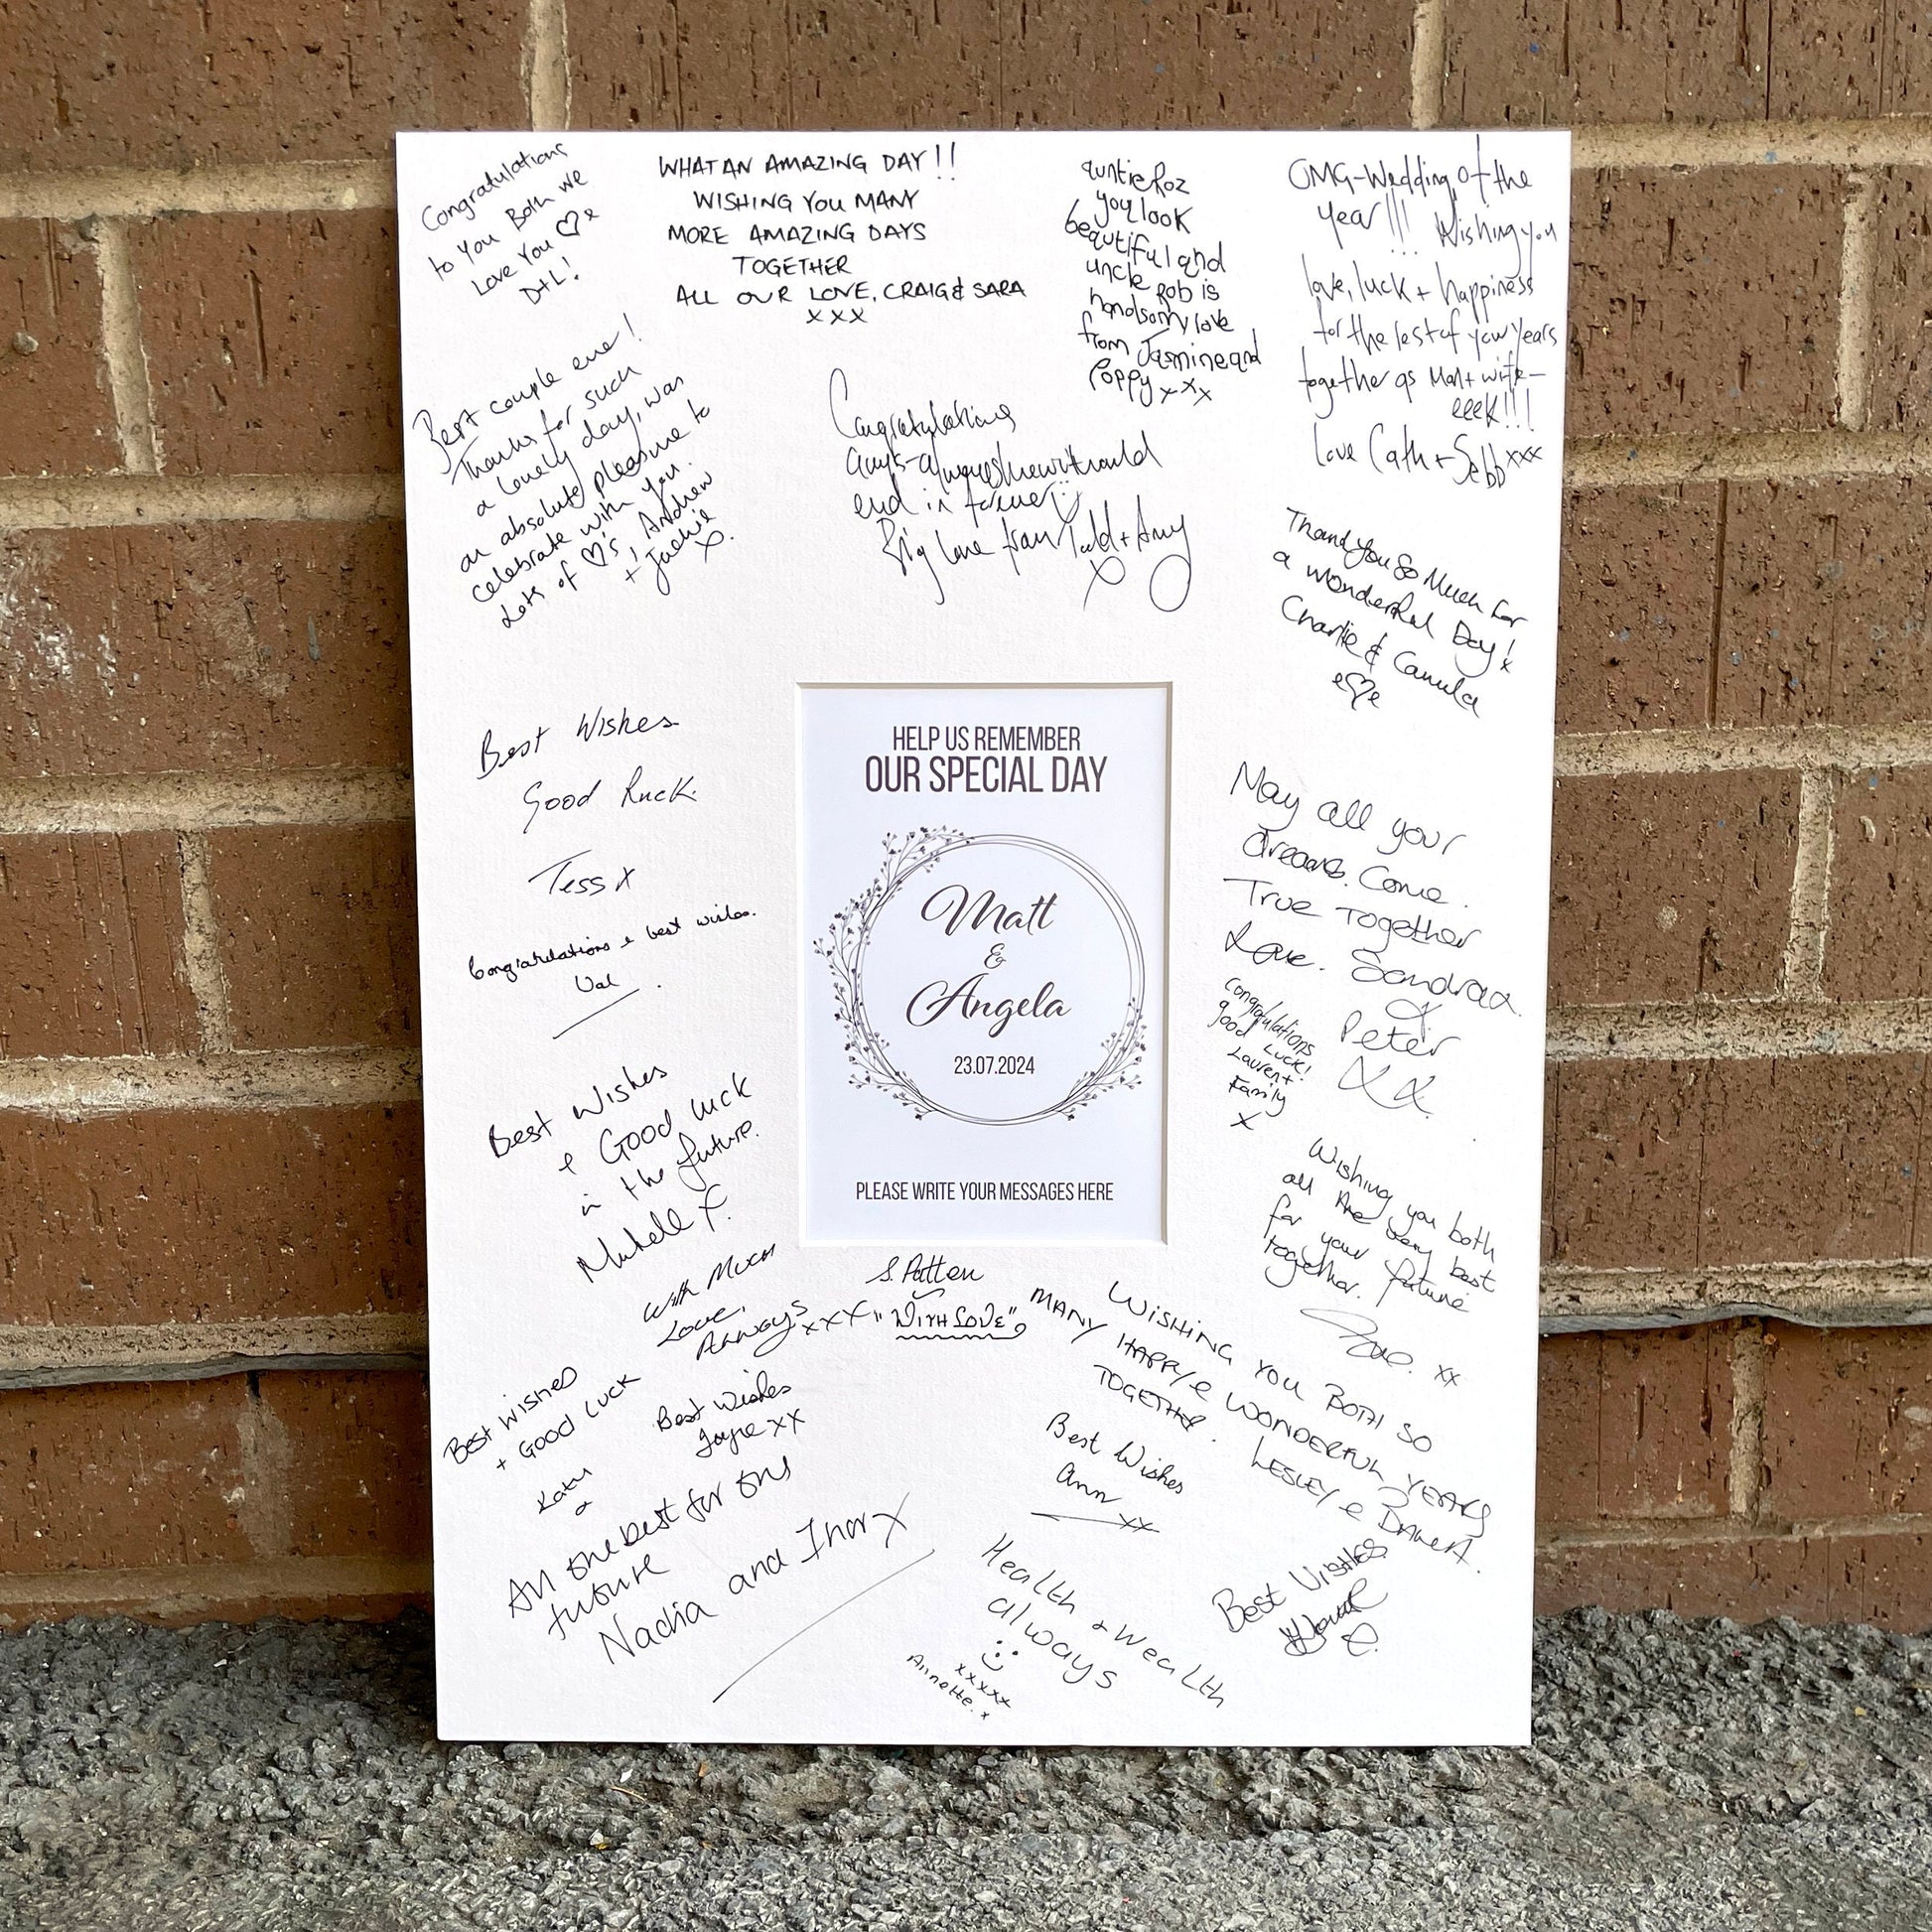 Congratulations
to You Both we
Love You
D+L!
WHAT AN AMAZING DAY!!
WISHING YOU MANY
MORE AMAZING DAYS
TOGETHER
ALL OUR LOVE, CRAIG & SARA
xxx
auntie Roz
you look
beautiful and
uncle Rob is
handsom love
from Jasmine and
Poppy xxx
OMG-Wedding of the
year!!! Wishing you
love, luck + happiness
for the rest of your years
together as Man + wife-
eeek!!!
love Cath + Sebb xxx
Best couple ever!
Thanks for such
a lovely day, was
an absolute pleasure to
celebrate with you.
Lots of ♡'s, Andrew
+ Jackie
x.
Congratulations
Guys-always knew it would
end in forever
Big love from Todd + Amy
x
Thank You So Much for
a wonderful Day! x
Charlie & Camula
Best Wishes
Good Luck.
Tess x
Congratulations & best wishes.
Val
HELP US REMEMBER
OUR SPECIAL DAY
Matt
&
Angela
23.07.2024
PLEASE WRITE YOUR MESSAGES HERE
May all your
dreams. Come.
True Together
Love. Sandraa.
&
Peter
xx.
Congratulations
good Luck!
Lauren +
Family
x
Best Wishes
& Good luck
in the future.
Michelle x.
Wishing you both
all the very best
for your future
together.
Zoe. xx
With Much
Love,
Always xxx
S. Patten
"With Love"
WISHING YOU BOTH SO
MANY HAPPY & WONDERFUL YEARS
TOGETHER.
LESLEY &
Best Wishes
+ Good Luck
Kath
Best Wishes
Joyce xx
Best Wishes
Ann
xx
All the best for the
future
Nadia and Thor x
Health + Wealth
always
xxxxx
Annette. x
Best Wishes